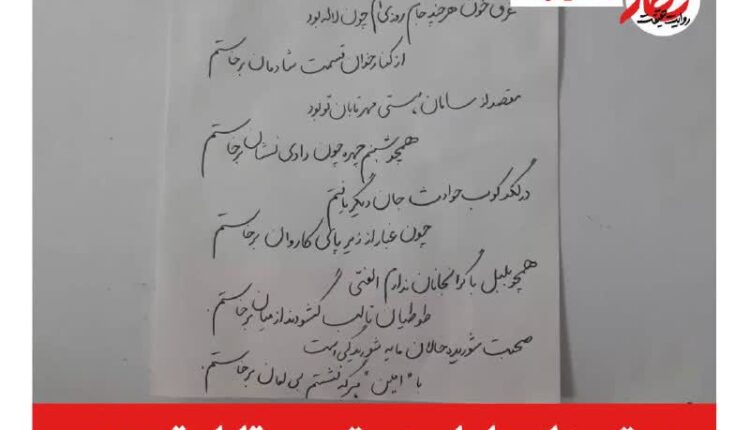 غرق خون هر چند جام روزی‌ام چون لاله بود
از کنار خوان قسمت شادمان برخاستم
مقصد از سامان هستی مهر تابان تو بود
همچو شبنم چهره چون دادی نشان برخاستم
در لگدکوب حوادث جان دیگر یافتم
چون غبار از زیر پای کاروان برخاستم
همچو بلبل با گرانجانان ندارم الفتی
طوطیان تا لب گشودند از میان برخاستم.
صحبت شوریده حالان مایه شوریدگی است
با "امین" هر گه نشستم بی امان برخاستم.
روایت حقیقت